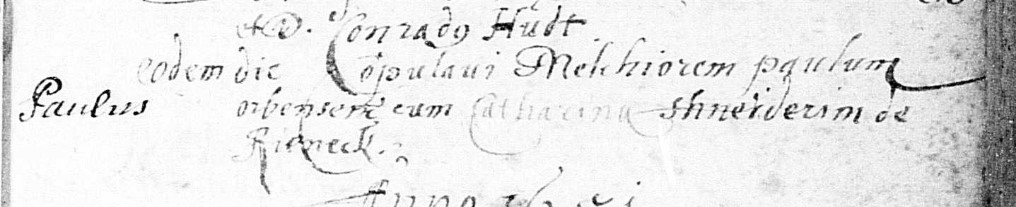 et D. Conradg Hudt
eodem die Copulavi Melchiorem paulum
Paulus orbensem cum Catharina shneiderim de
Rieneck.
Anno 1651